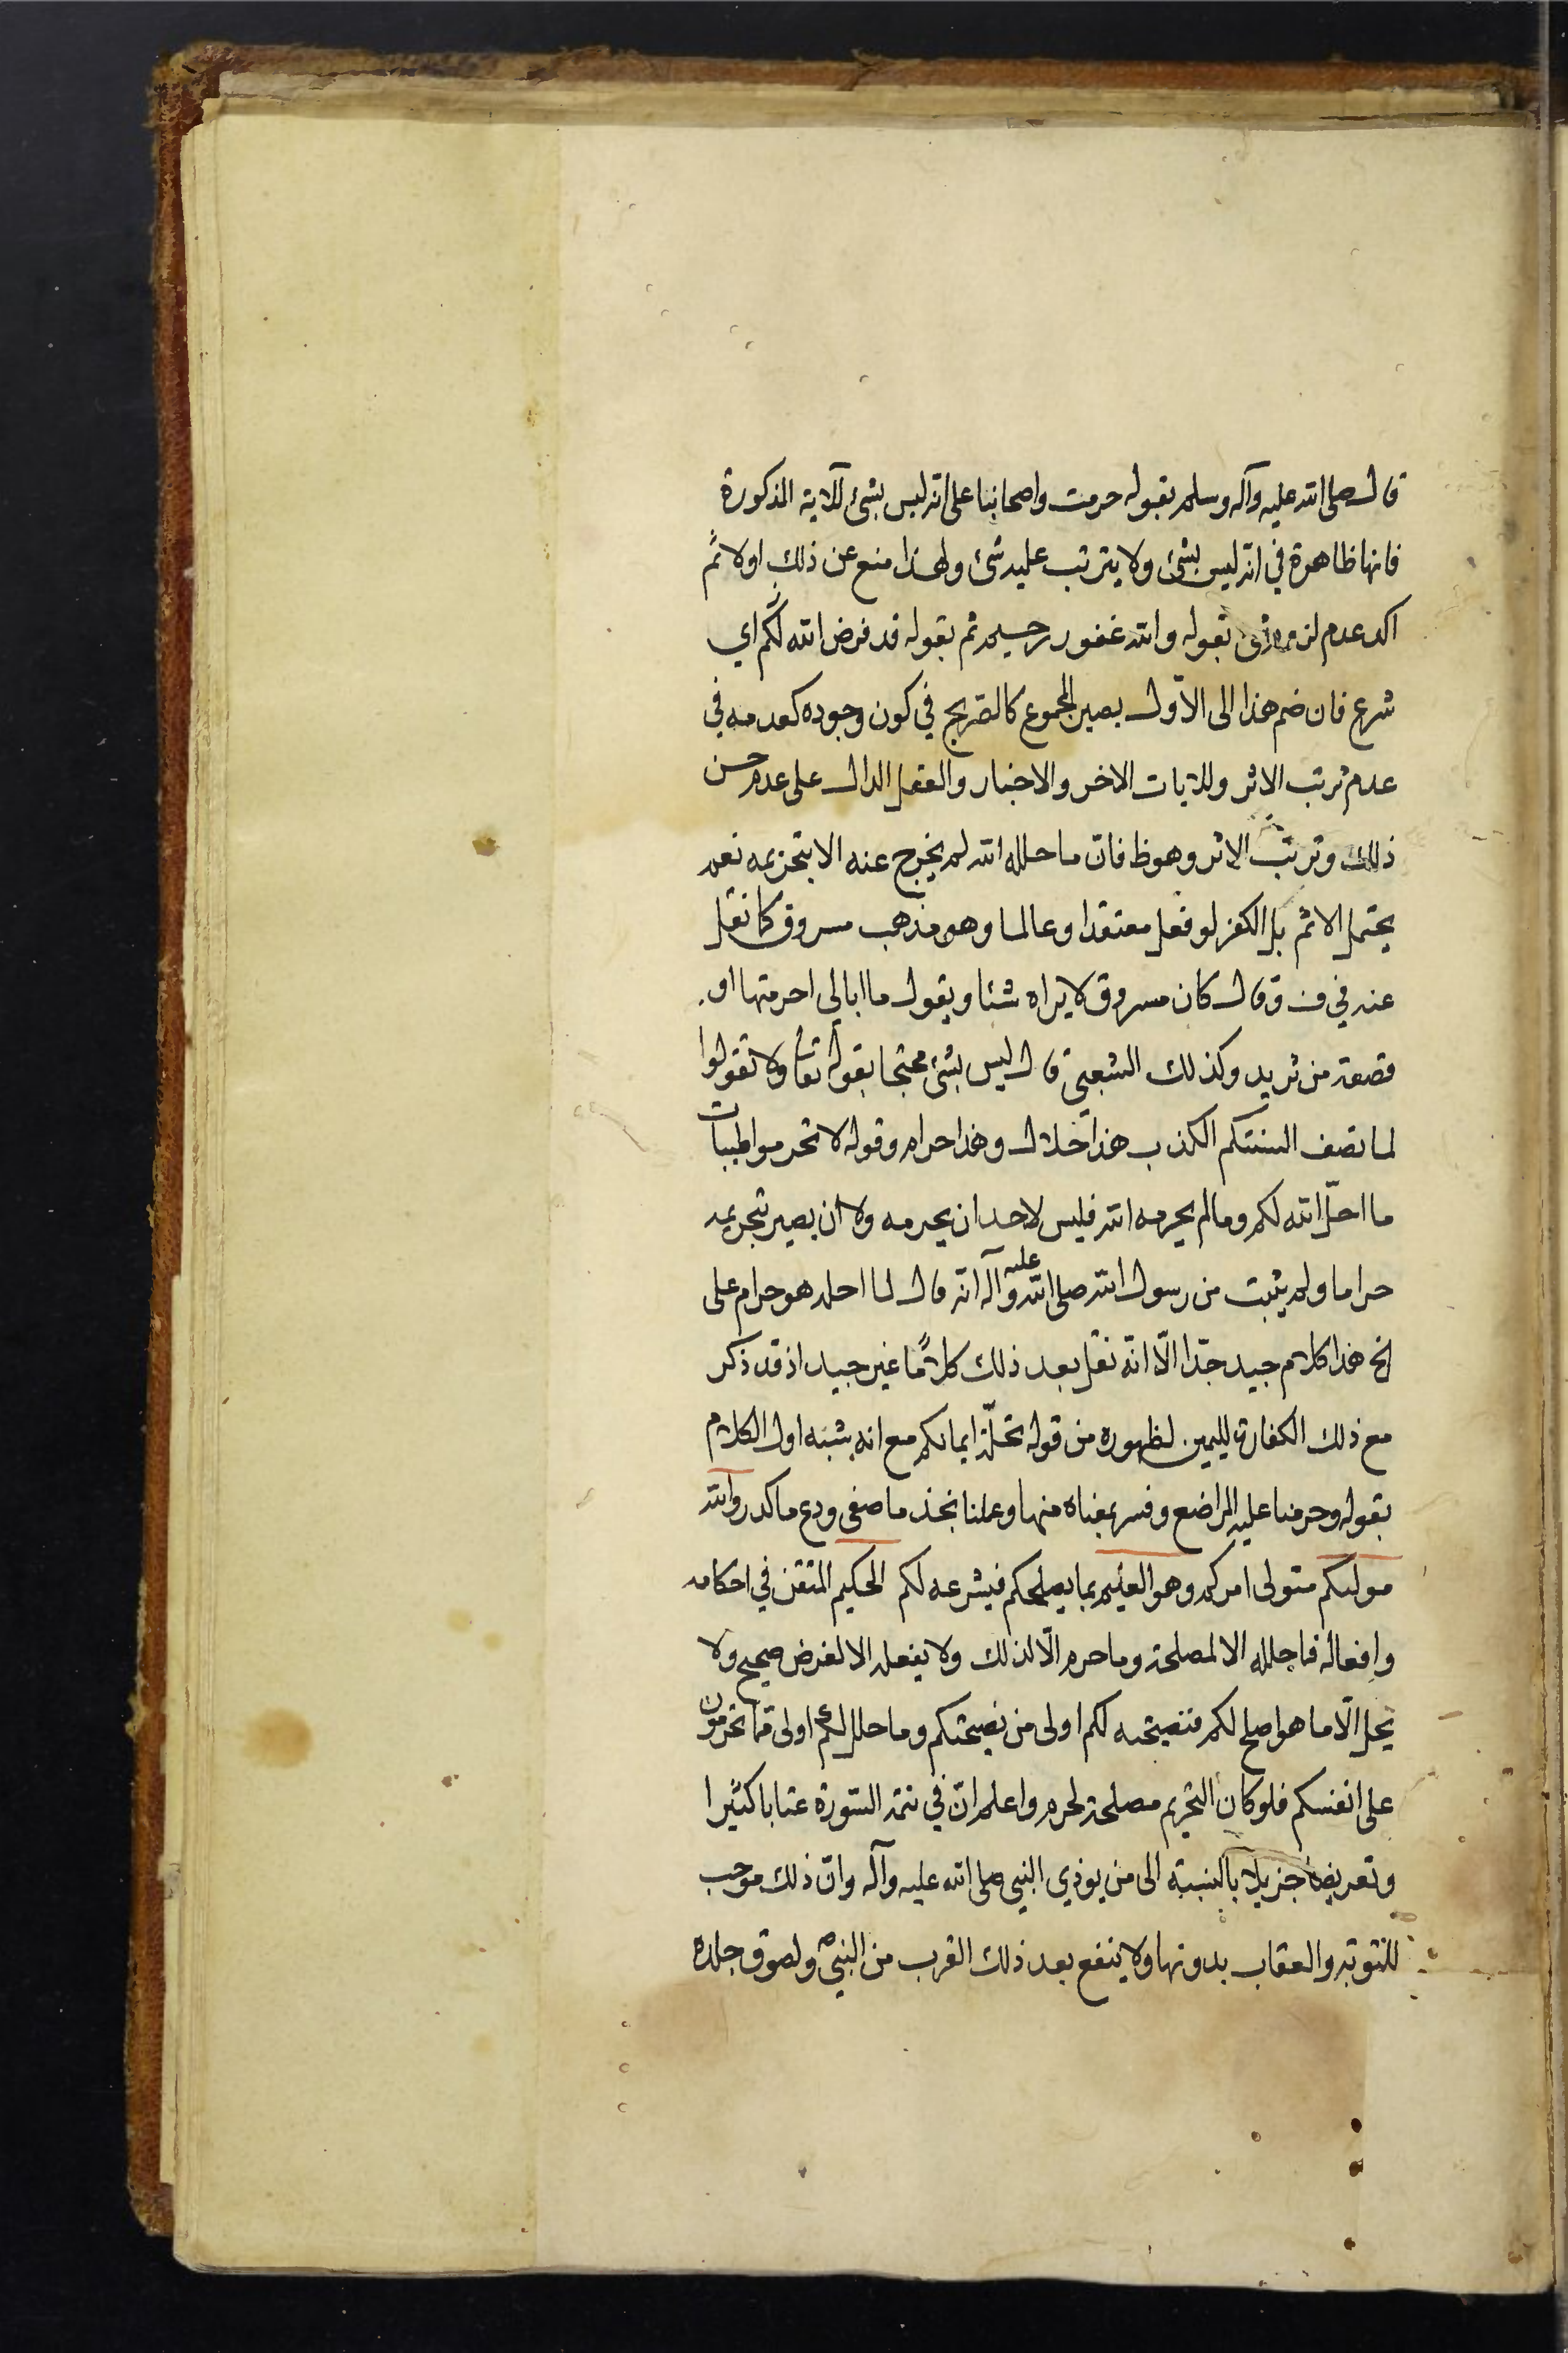 قال صلى الله عليه وآله وسلم بقوله حرمت واصحابنا على انه ليس بشئ للآية المذكورة
فانها ظاهرة في انه ليس بشئ ولا يترتب عليه شئ ولهذا منع عن ذلك اولا ثم
اكد عدم لزوم شئ بقوله والله غفور رحيم ثم بقوله قد فرض الله لكم اي
شرع فان ضم هذا الى الاول يصير المجموع كالصريح في كون وجوده كعدمه في
عدم ترتب الاثر وللآيات الاخر والاخبار والعقل الدال على عدم حسن
ذلك وترتب الاثر وهو ظ فان ما حلله الله لم يخرج عنه الا بتحريمه نعم
يحتمل الاثم بل الكفر لو فعل معتقدا وعالما وهو مذهب مسروق كما نقل
عنه في ف وقال كان مسروق لا يراه شئا ويقول ما ابالي احرمتها او
قصعة من ثريد وكذلك الشعبي قال ليس بشئ محتجا بقوله تعالى ولا تقولوا
لما تصف السنتكم الكذب هذا حلال وهذا حرام وقوله لا تحرموا طيبات
ما احل الله لكم وما لم يحرمه الله فليس لاحد ان يحرمه ولا ان يصير بتحريمه
حراما ولم يثبت من رسول الله صلى الله عليه وآله انه قال لما احله هو حرام على
الخ هذا كلام جيد جدا الا انه نقل بعد ذلك كلاما غير جيد اذ قد ذكر
مع ذلك الكفارة لليمين لظهوره من قوله تحلة ايمانكم مع انه يشبه اول الكلام
بقوله وحرمنا عليه المراضع وفسر بمعناه منها وعملنا بخذ ما صفى ودع ما كدر والله
مولىكم متولى امركم وهو العليم بما يصلحكم فيشرعه لكم الحكيم المتقن في احكامه
وافعاله فما حلله الا لمصلحة وما حرم الا لذلك ولا يفعله الا لغرض صحيح ولا
يحل الا ما هو اصلح لكم فنصيحته لكم اولى من نصيحتكم وما حلل لكم اولى مما تحرمون
على انفسكم فلو كان التحريم مصلحة لحرم واعلم ان في تتمة السورة عتابا كثيرا
وتعريضا جزيلا بالنسبة الى من يوذي النبي صلى الله عليه وآله وان ذلك موجب
للتوبة والعقاب بدونها ولا ينفع بعد ذلك القرب من النبي ص ولصوق جلده